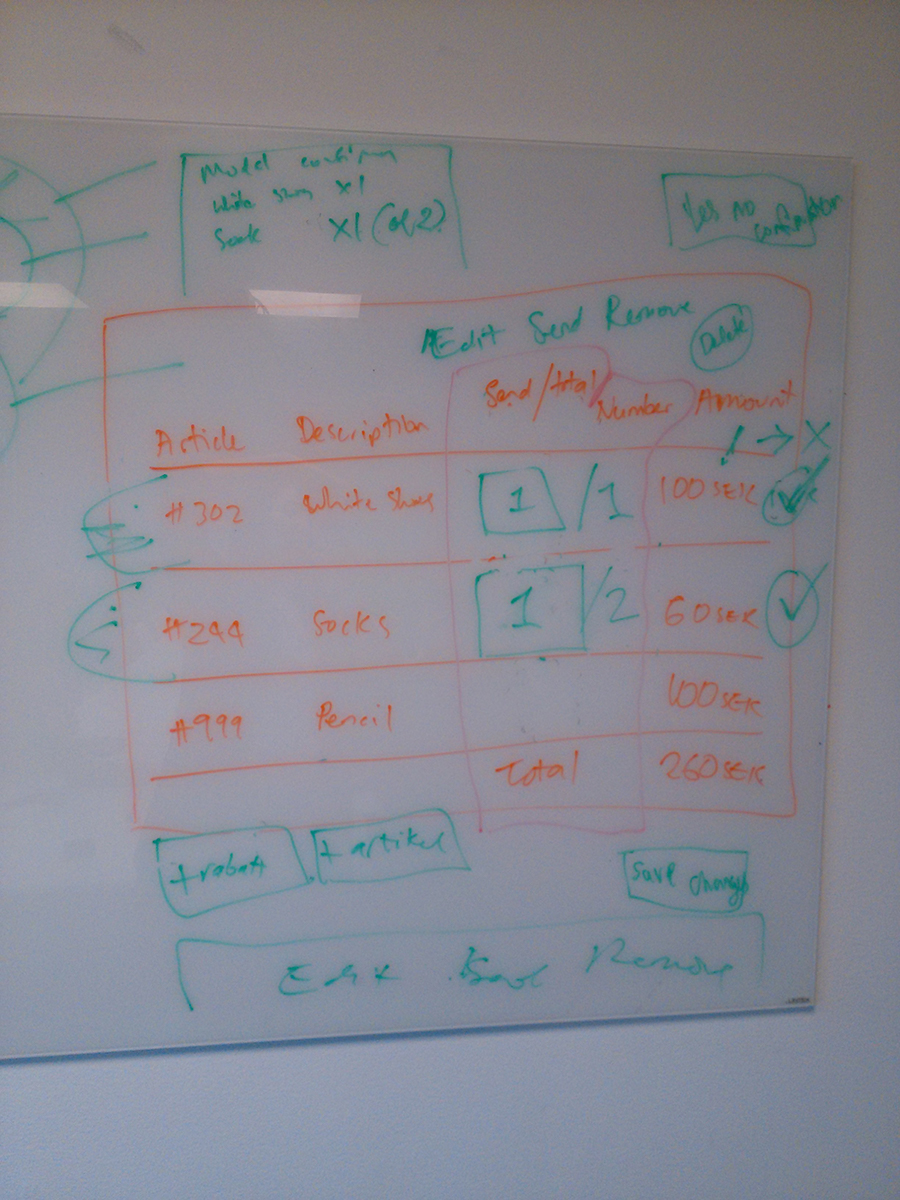 Model confirm
white shoes x1
Sock x1 (of 2)
Yes no
confirmation
Edit Send Remove
Delete
Article Description Send/total Number Amount
! → X
#302 White shoes 1 / 1 100 SEK
#244 Socks 1 / 2 60 SEK
#999 Pencil 100 SEK
Total 260 SEK
+ rabatt + artikel
Save changes
Edit Remove